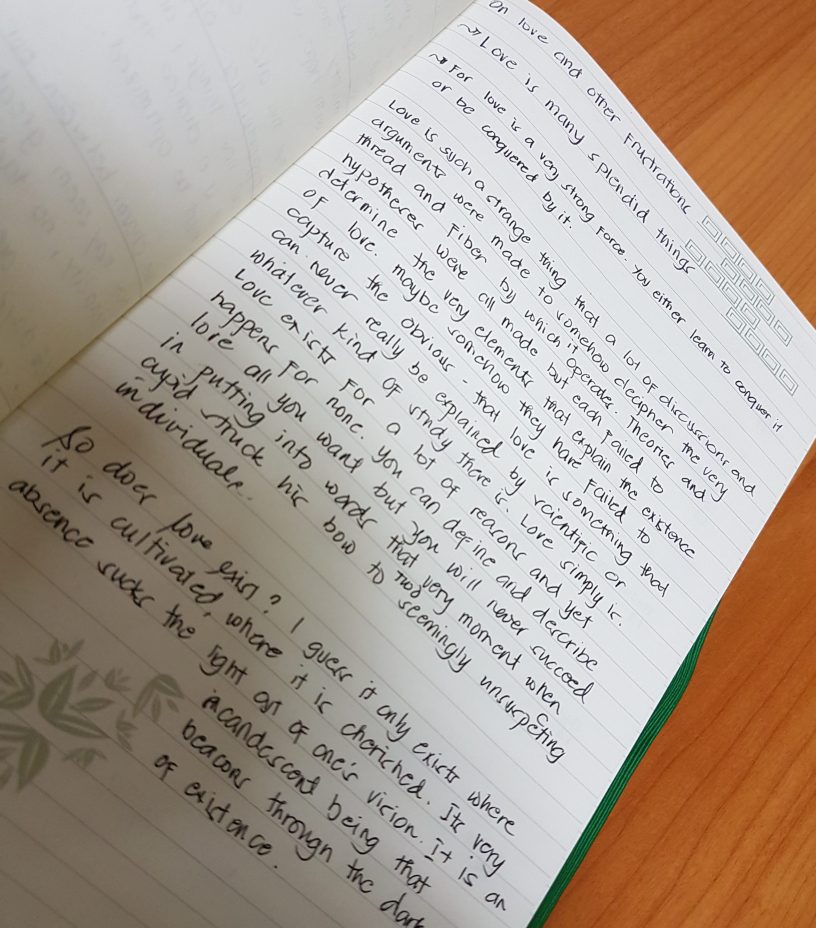 On love and other Frustrations
Love is many splendid things
For love is a very strong force. You either learn to conquer it
or be conquered by it.
Love is such a strange thing that a lot of discussions and
arguments were made to somehow decipher the very
thread and Fiber by which it operates. Theories and
hypotheses were all made but each Failed to
determine the very elements that explain the existence
of love. maybe somehow they have Failed to
capture the obvious - that love is something that
can never really be explained by scientific or
whatever kind of study there is. Love simply is.
Love exists For a lot of reasons and yet
happens For none. You can define and describe
love all you want but you will never succeed
in putting into words that very moment when
cupid struck his bow to two seemingly unsuspeting
individuals.
So does love exist? I guess it only exists where
it is cultivated, where it is cherished. Its very
absence sucks the light out of one's vision. It is an
incandescent being that
beacons through the dark
of existence.